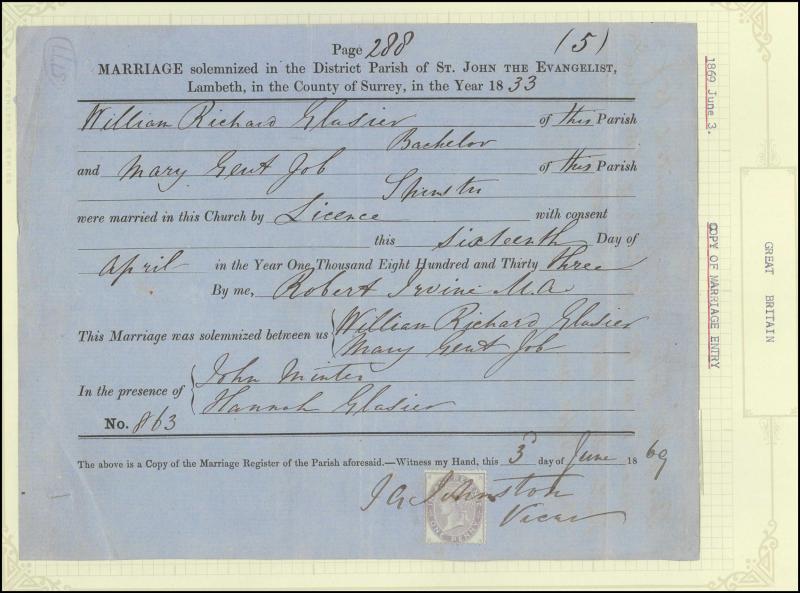 Page 288 (5)
MARRIAGE solemnized in the District Parish of ST. JOHN THE EVANGELIST,
Lambeth, in the County of Surrey, in the Year 1833
William Richard Glasier of this Parish
Bachelor
and Mary Gent Job of this Parish
Spinster
were married in this Church by Licence with consent
this sixteenth Day of
April in the Year One Thousand Eight Hundred and Thirty three
By me, Robert Irvine M.A.
This Marriage was solemnized between us { William Richard Glasier
Mary Gent Job
In the presence of { John Minter
Hannah Glasier
No. 863
The above is a Copy of the Marriage Register of the Parish aforesaid.—Witness my Hand, this 3d day of June 1869
Johnston
Vicar
ONE PENNY
1869 June 3.
COPY OF MARRIAGE ENTRY
GREAT BRITAIN